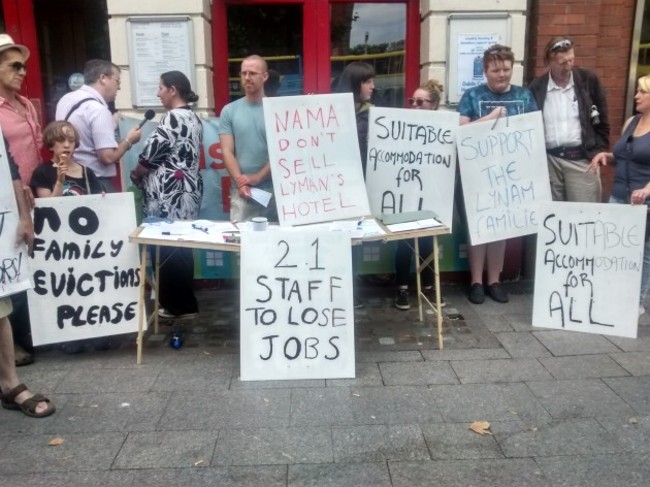 NO
FAMILY
EVICTIONS
PLEASE
NAMA
DON'T
SELL
LYMAN'S
HOTEL
SUITABLE
ACCOMMODATION
FOR
ALL
SUPPORT
THE
LYNAM
FAMILIE
SUITABLE
ACCOMMODATION
for
ALL
21
STAFF
TO LOSE
JOBS